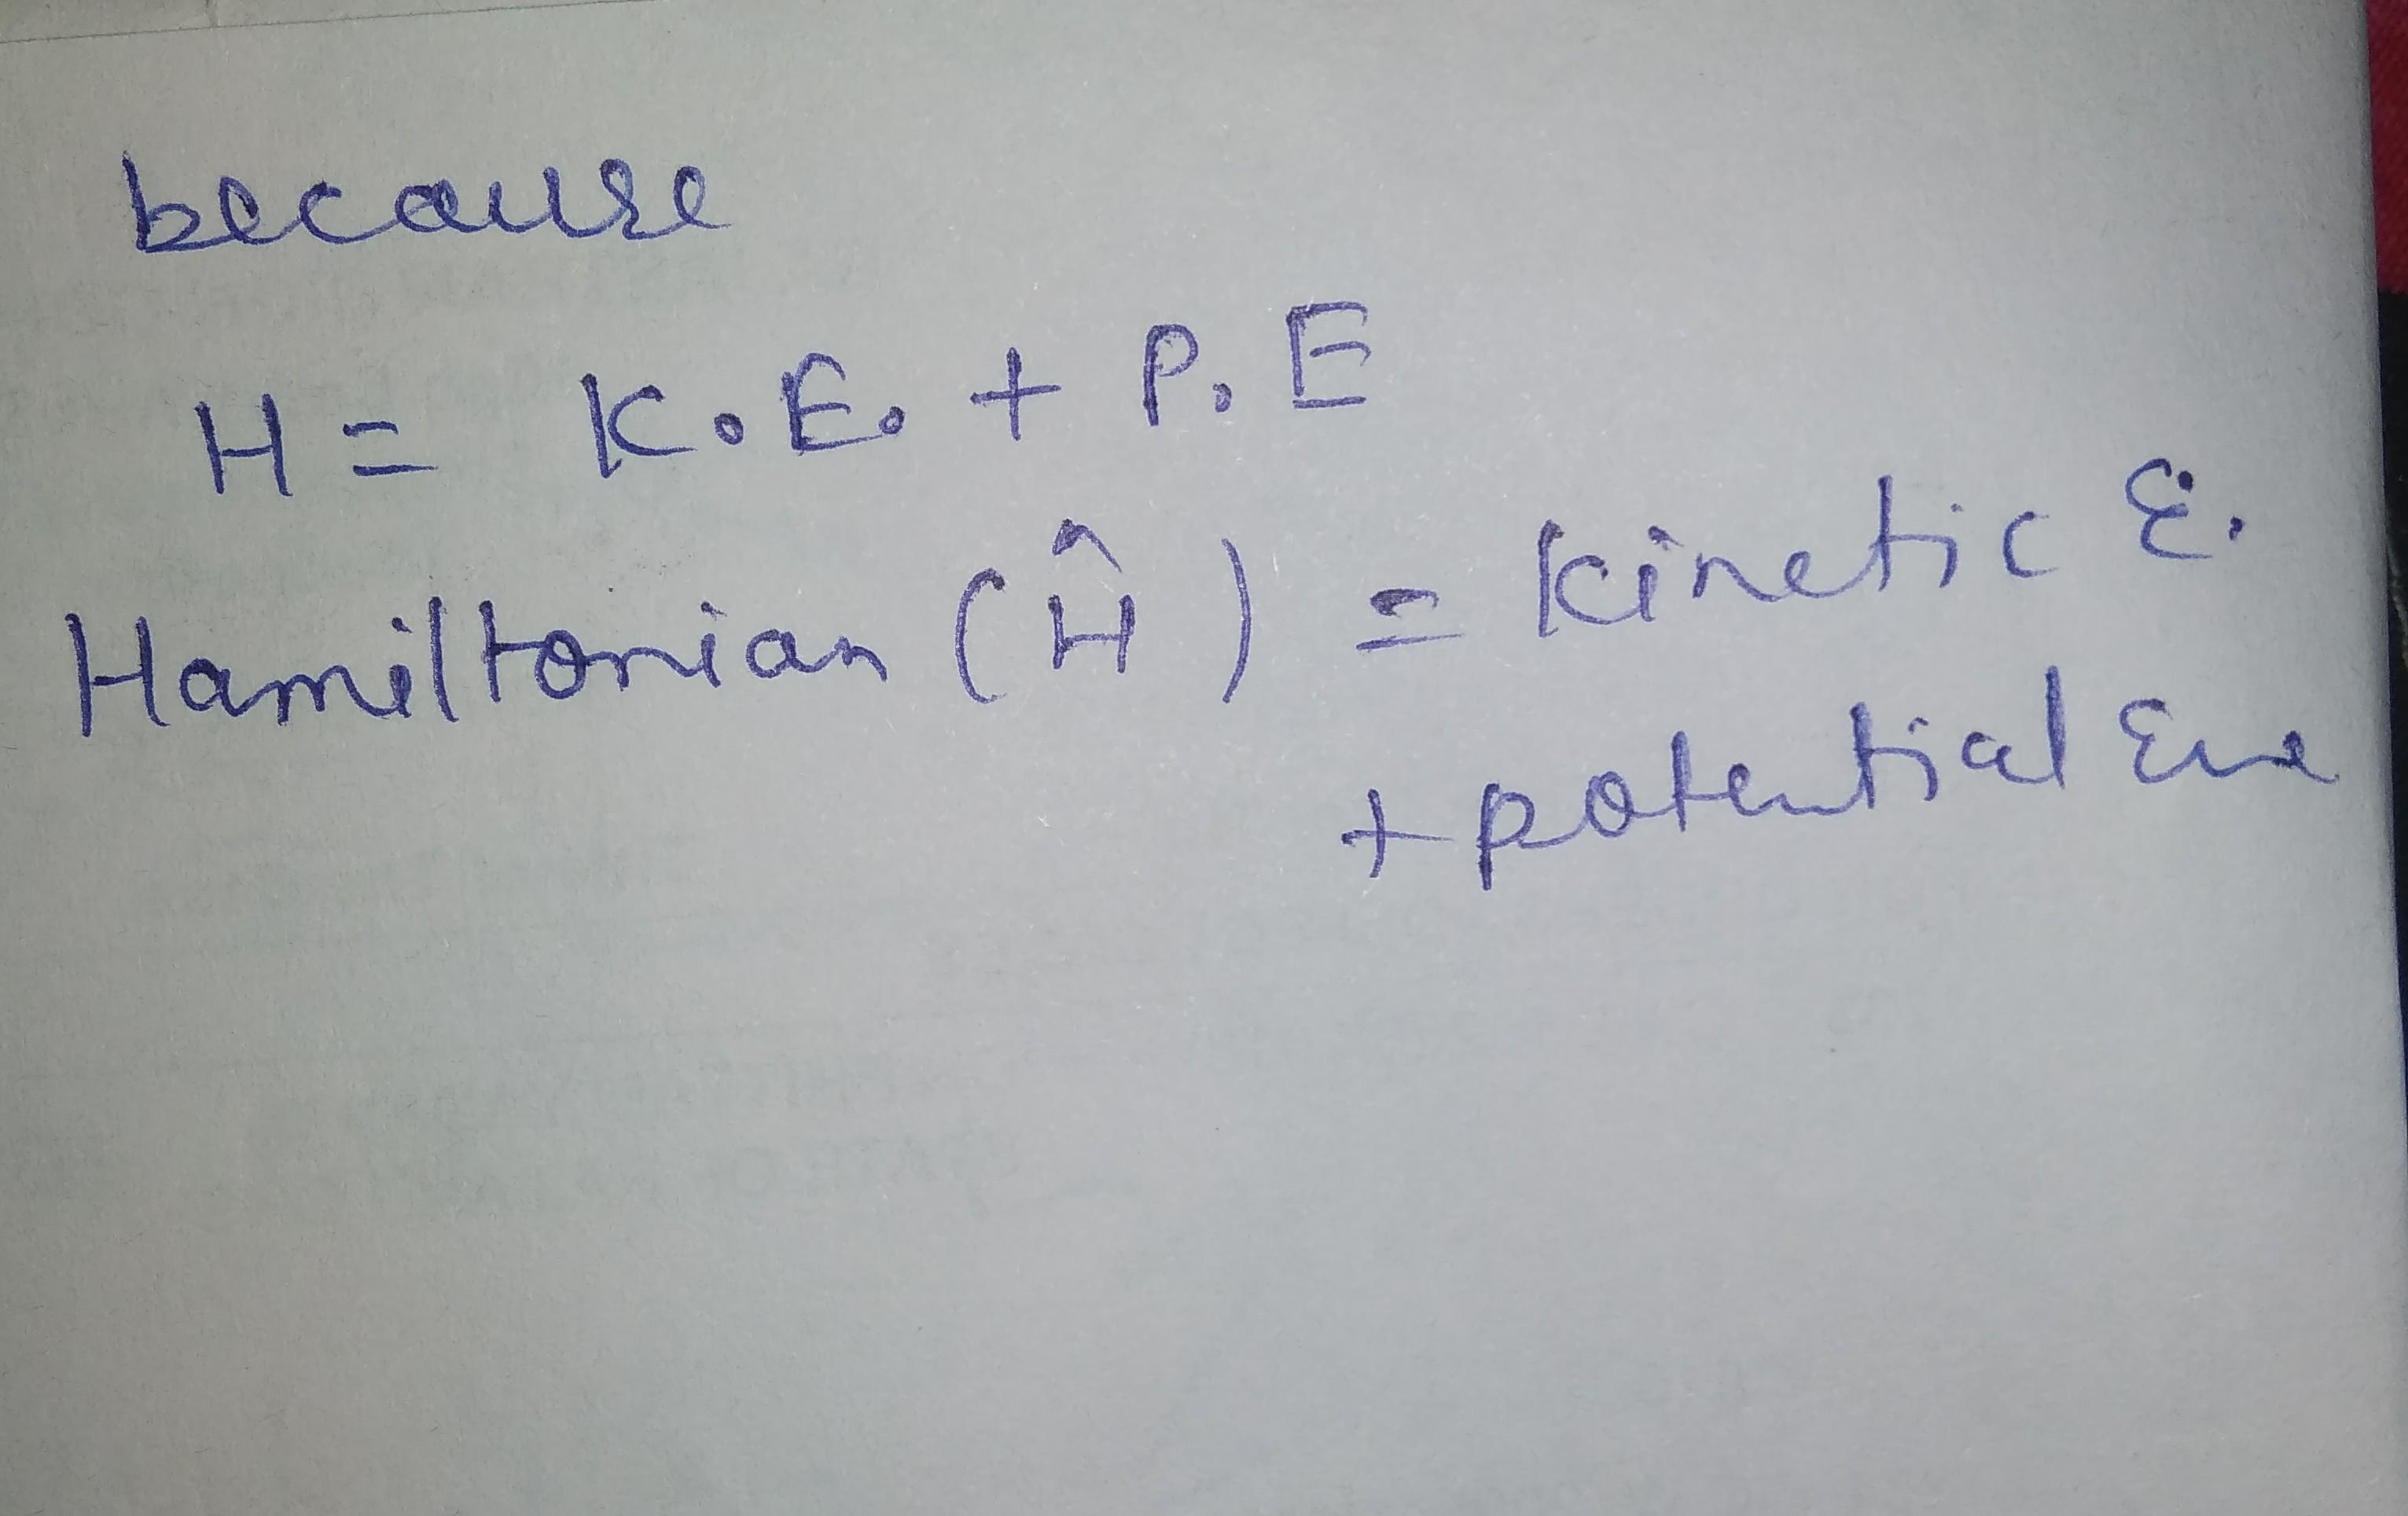 because
H = K.E. + P.E
Hamiltonian (Ĥ) = Kinetic E.
+ potential Ene